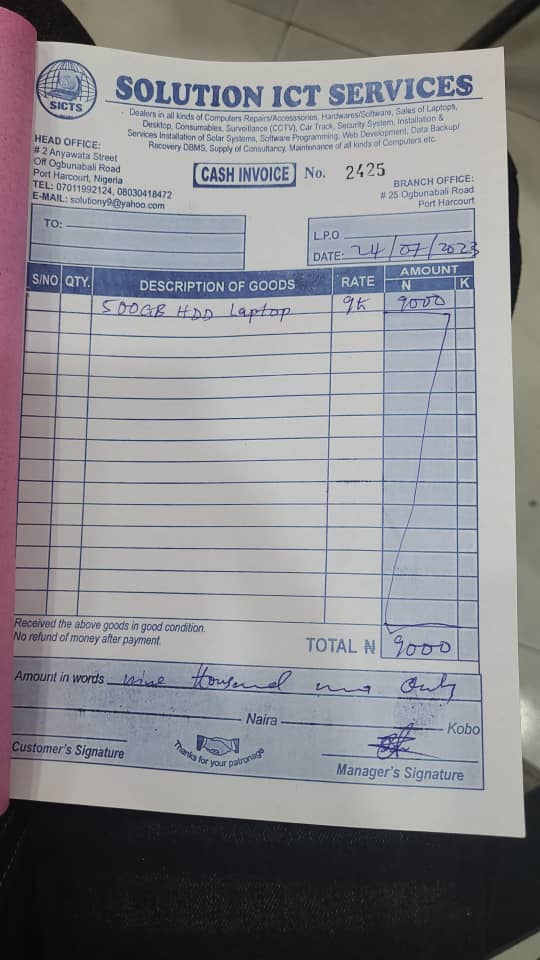 SICTS
SOLUTION ICT SERVICES
Dealers in all kinds of Computers Repairs/Accesssories, Hardwares/Software, Sales of Laptops,
Desktop, Consumables, Surveillance (CCTV), Car Track, Security System, Installation &
Services Installation of Solar Systems, Software Programming, Web Development, Data Backup/
Recovery DBMS, Supply of Consultancy, Maintenance of all kinds of Computers etc.
HEAD OFFICE:
# 2 Anyawata Street
Off Ogbunabali Road
Port Harcourt, Nigeria
TEL: 07011992124, 08030418472
E-MAIL: solutiony9@yahoo.com
CASH INVOICE No. 2425
BRANCH OFFICE:
# 25 Ogbunabali Road
Port Harcourt
TO:
L.P.O
DATE: 24/07/2023
S/NO QTY. DESCRIPTION OF GOODS RATE AMOUNT
N K
500GB HDD Laptop 9k 9000
Received the above goods in good condition.
No refund of money after payment.
TOTAL ₦ 9000
Amount in words nine thousand only
Naira Kobo
Customer's Signature
Thanks for your patronage
Manager's Signature